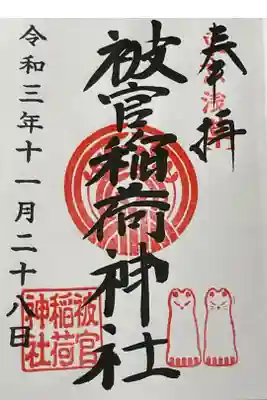 奉拝
被官稲荷神社
令和三年十一月二十八日
被官
稲荷
神社